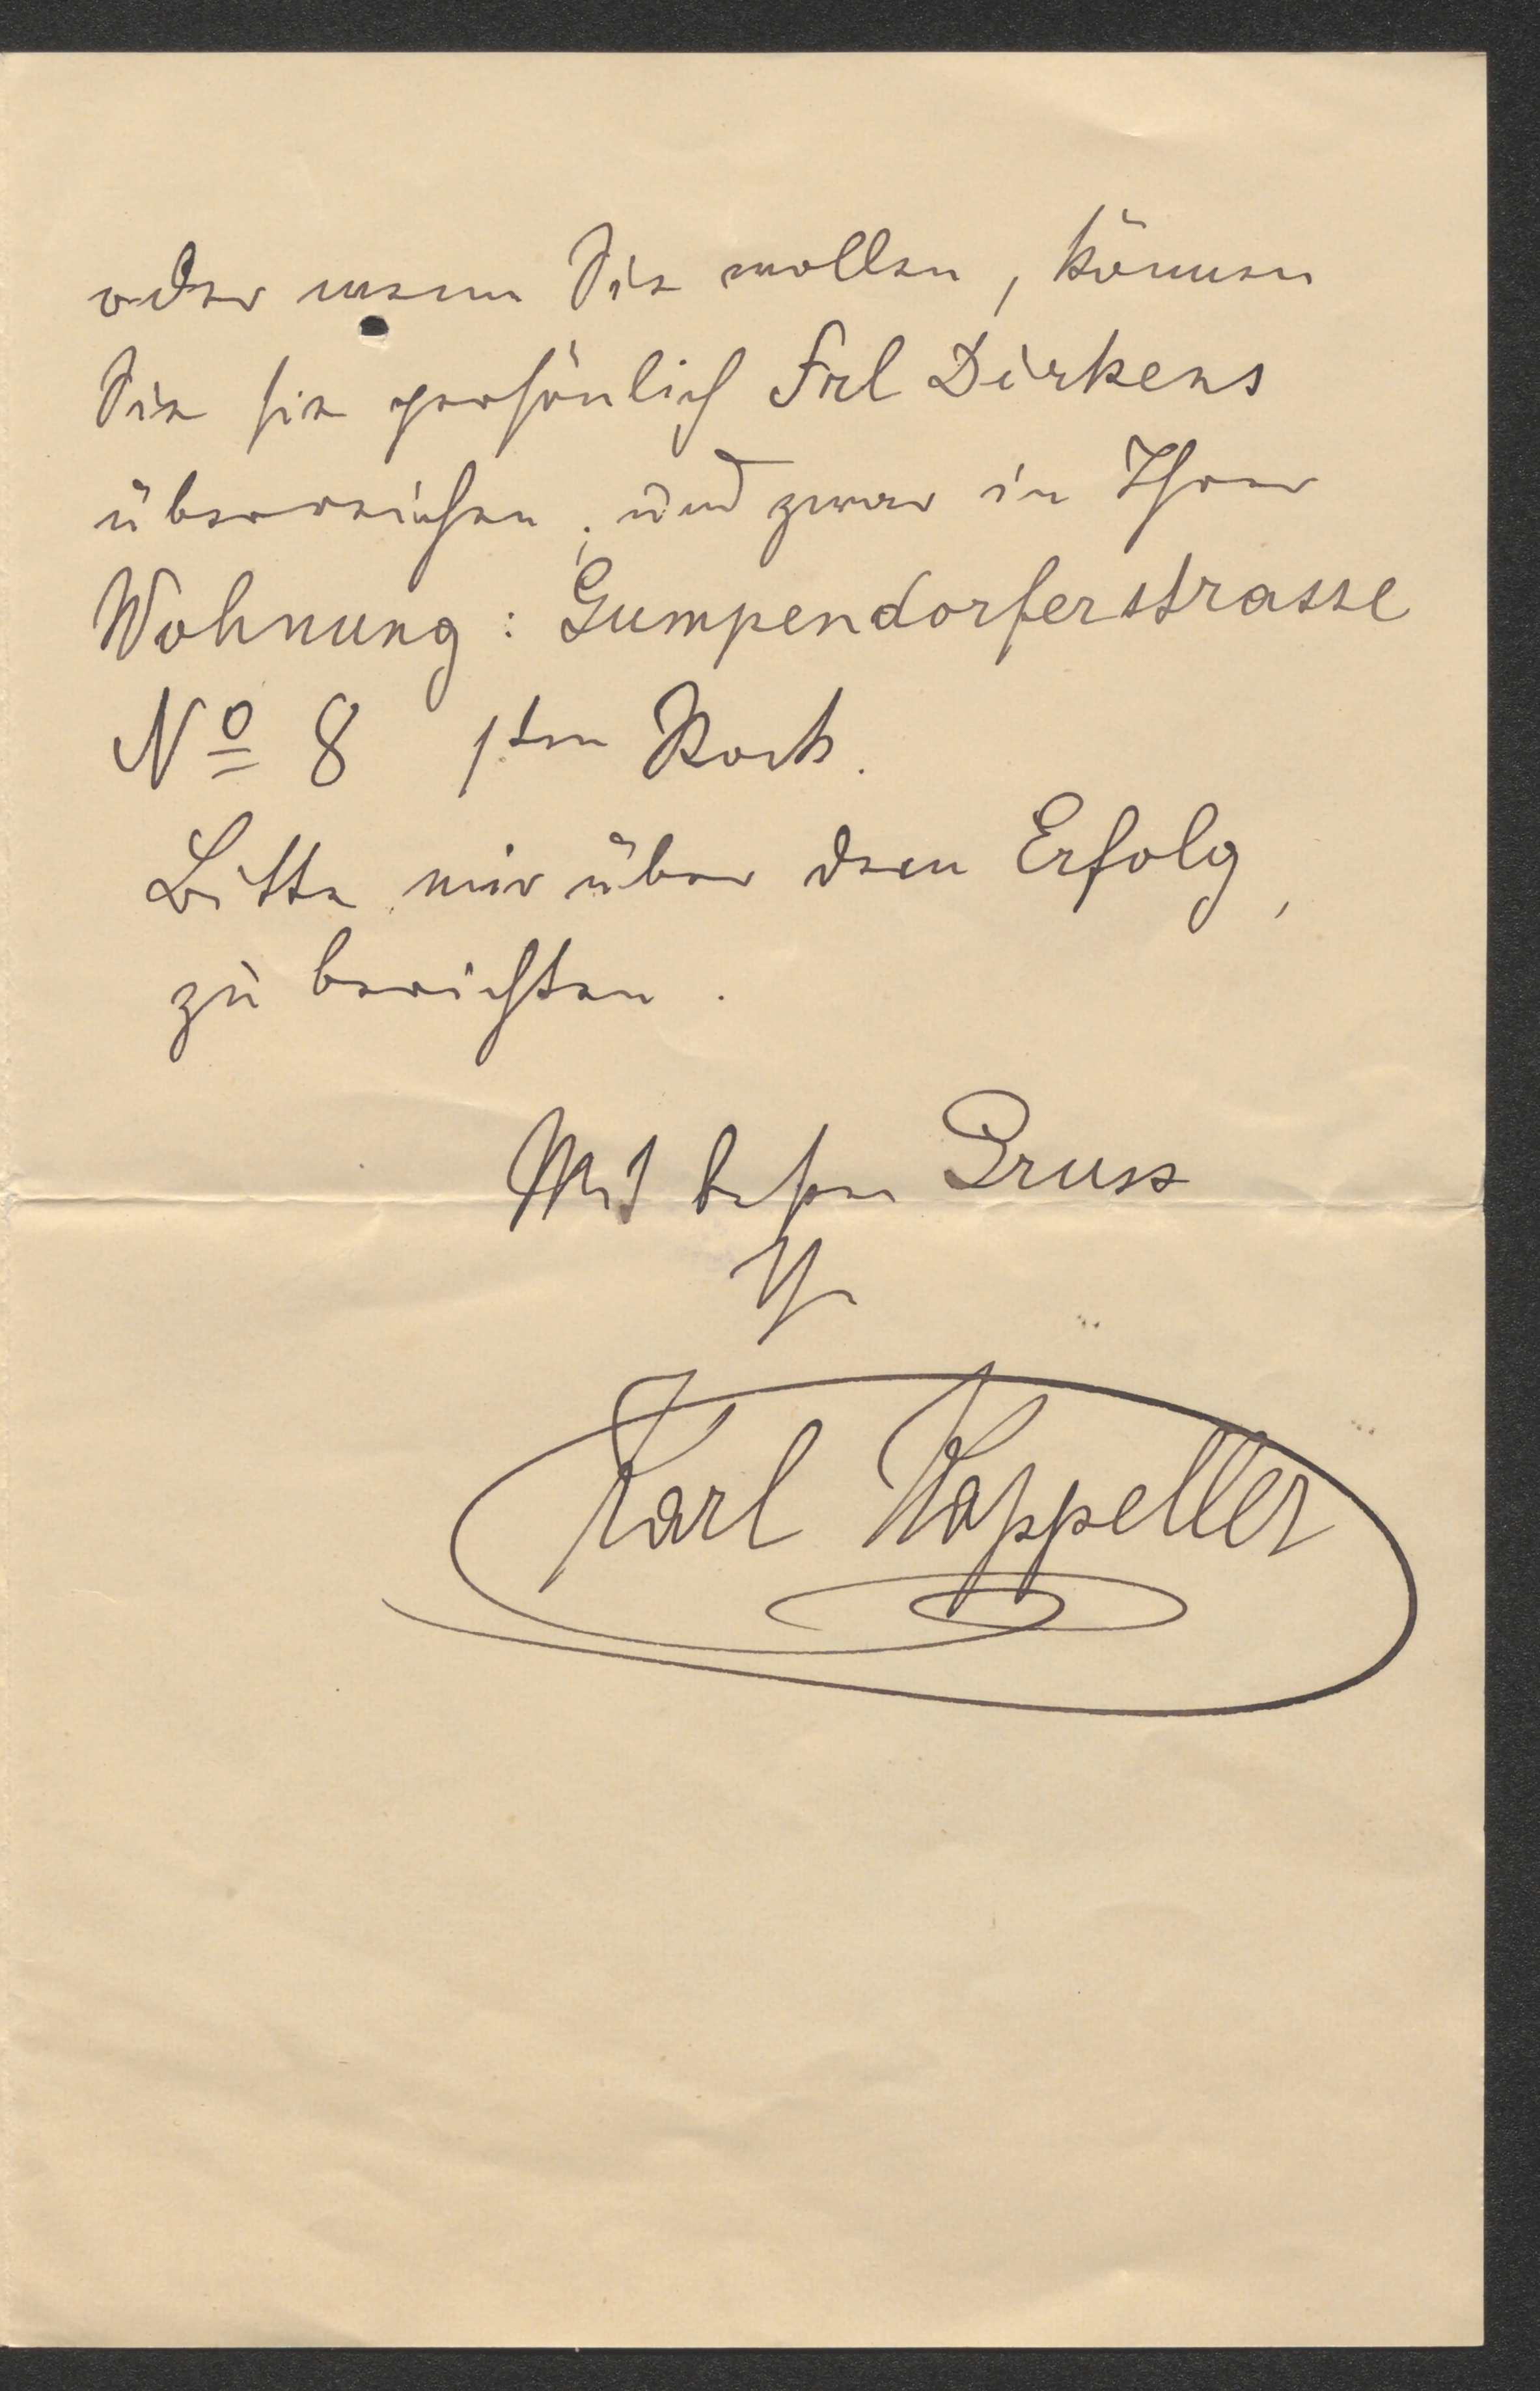 oder wenn Sie wollen, können
Sie sie persönlich Frl Dirkens
überreichen, und zwar in Ihrer
Wohnung: Gumpendorferstrasse
Nº 8 1ten Stock.
Bitte mir über den Erfolg,
zu berichten.
Mit besten Gruss
Ihr
Karl Kappeller